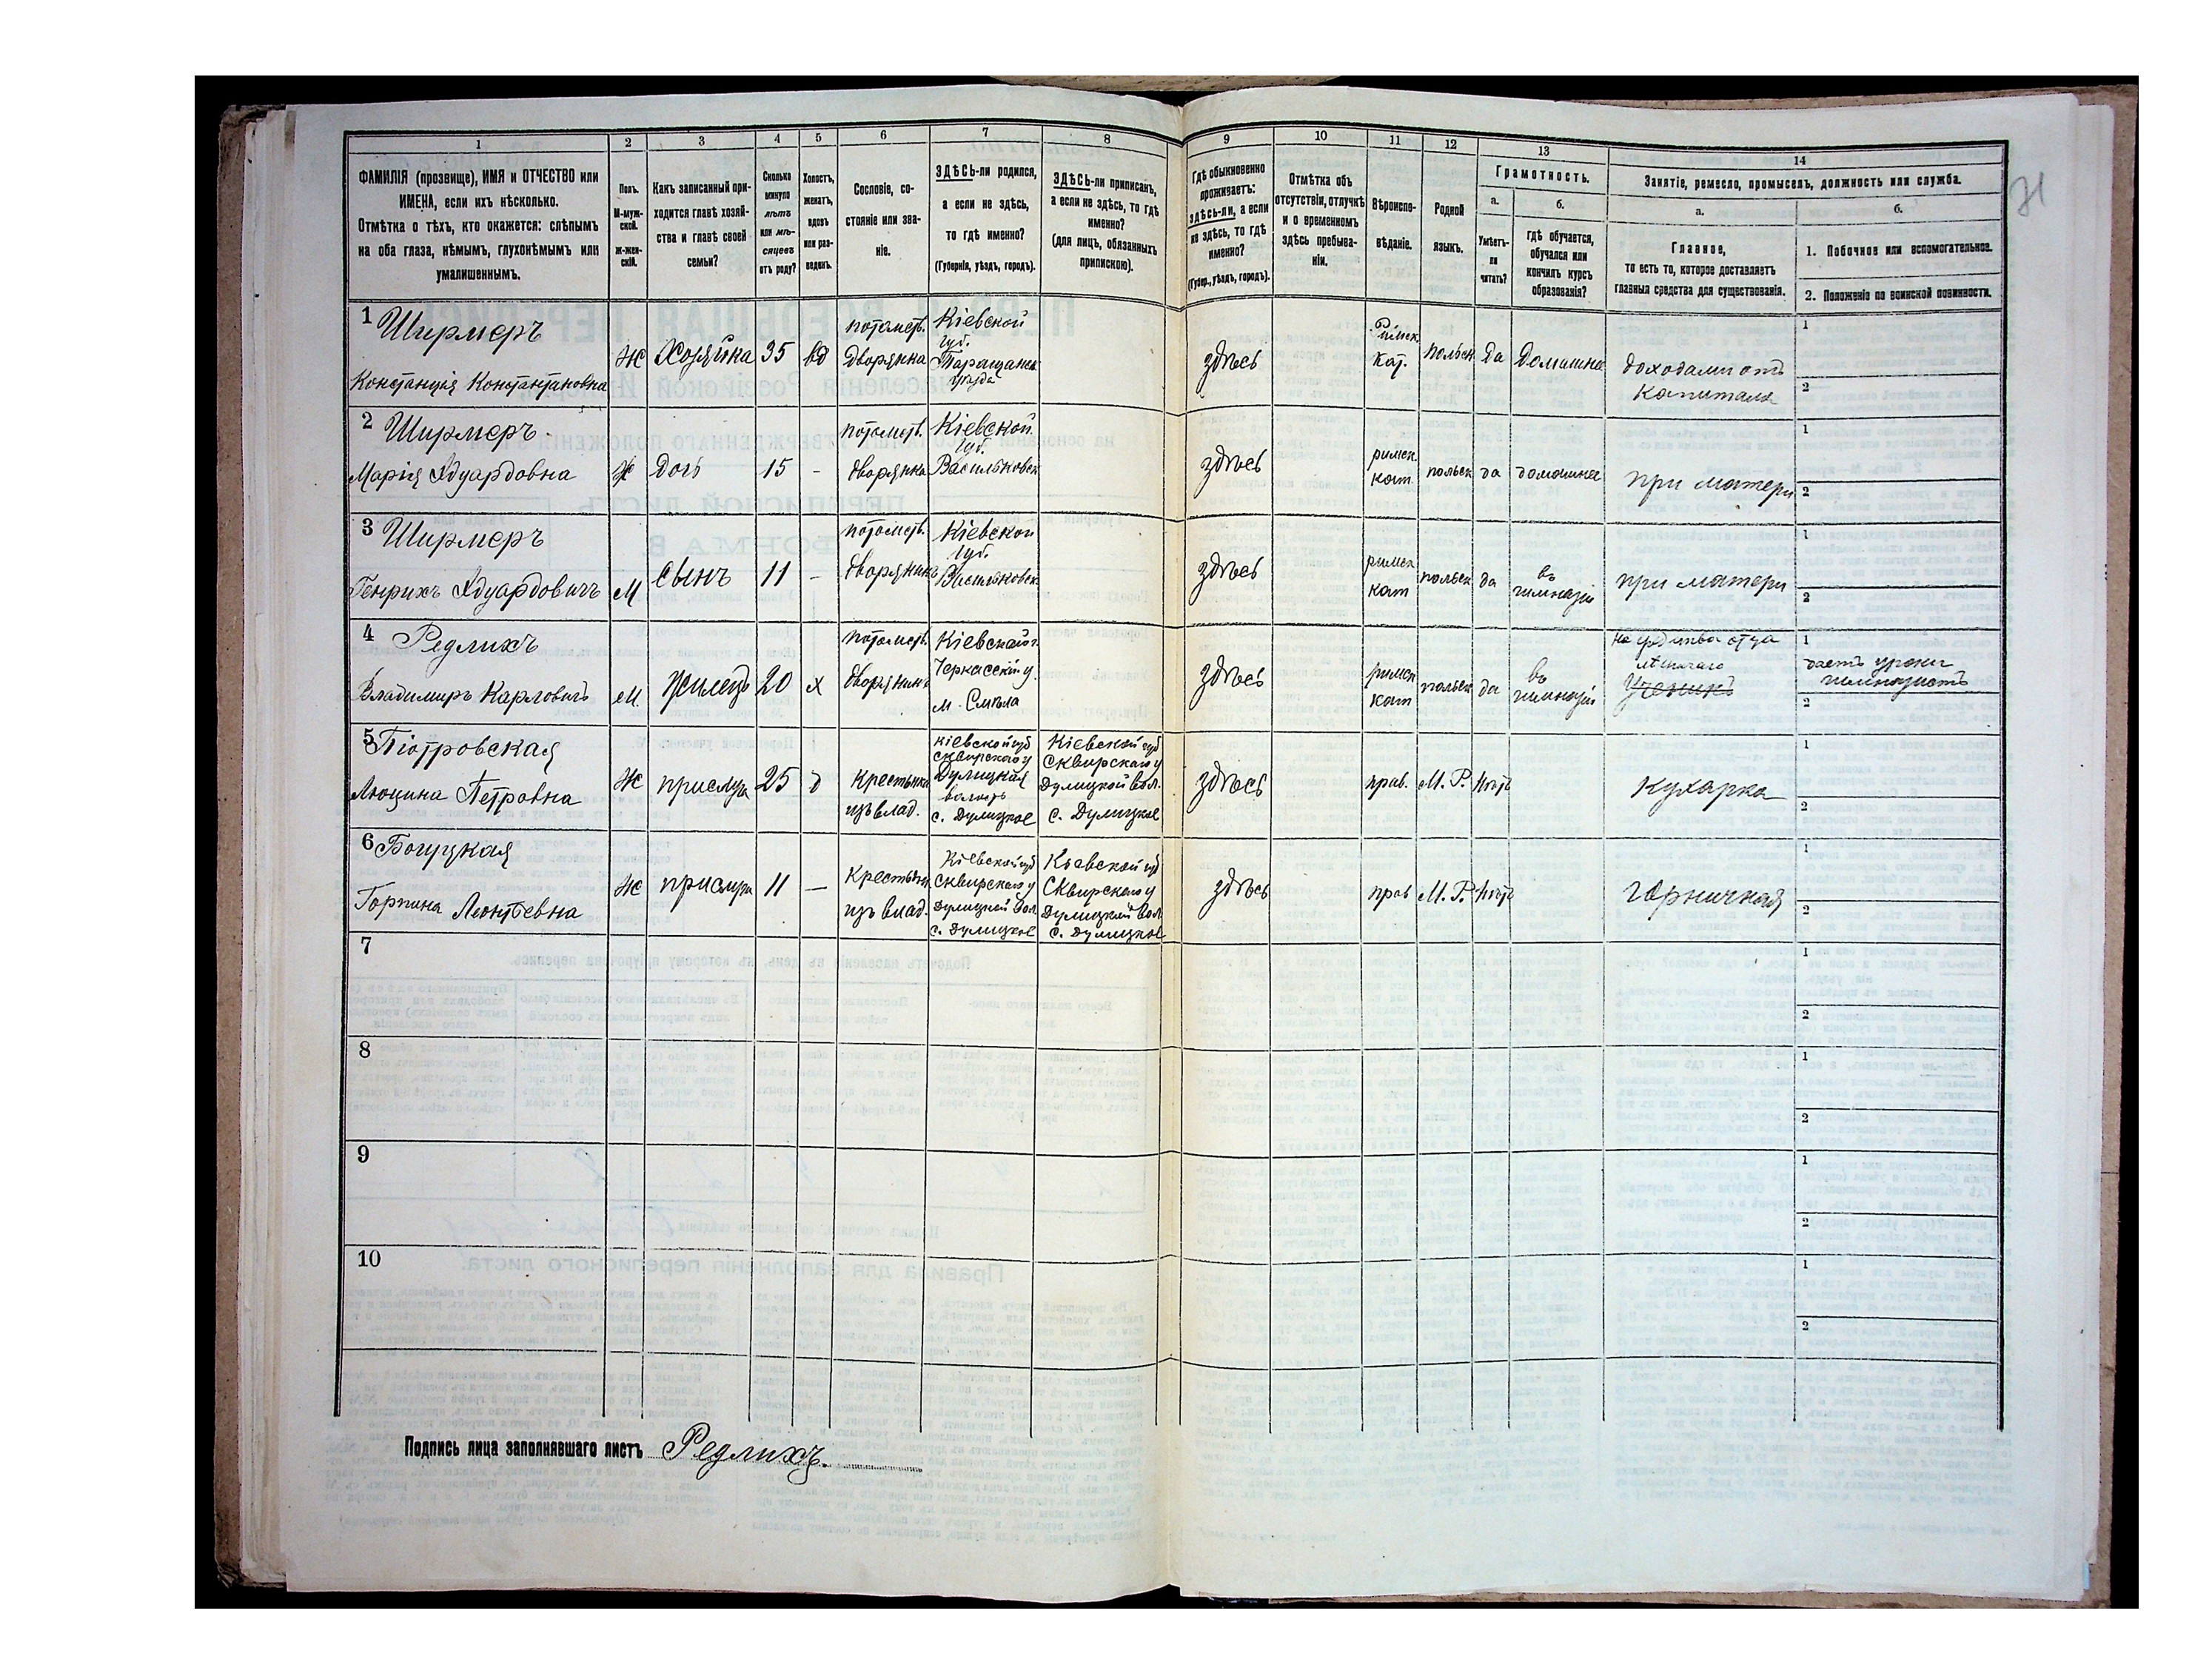 1
2
3
4
5
6
7
8
9
10
11
12
13
14
ФАМИЛІЯ (прозвище), ИМЯ и ОТЧЕСТВО или
ИМЕНА, если ихъ нѣсколько.
Отмѣтка о тѣхъ, кто окажется: слѣпымъ
на оба глаза, нѣмымъ, глухонѣмымъ или
умалишеннымъ.
Полъ.
М-муж-
ской.
Ж-жен-
скій.
Какъ записанный при-
ходится главѣ хозяй-
ства и главѣ своей
семьи?
Сколько
минуло
лѣтъ
или мѣ-
сяцевъ
отъ роду?
Холостъ,
женатъ,
вдовъ
или раз-
веденъ.
Сословіе, со-
стояніе или зва-
ніе.
ЗДѢСЬ-ли родился,
а если не здѣсь,
то гдѣ именно?
(Губернія, уѣздъ, городъ).
ЗДѢСЬ-ли приписанъ,
а если не здѣсь, то гдѣ
именно?
(для лицъ, обязанныхъ
припискою).
Гдѣ обыкновенно
проживаетъ:
здѣсь-ли, а если
не здѣсь, то гдѣ
именно?
(Губер., уѣздъ, городъ).
Отмѣтка объ
отсутствіи, отлучкѣ
и о временномъ
здѣсь пребыва-
ніи.
Вѣроиспо-
вѣданіе.
Родной
языкъ.
Грамотность.
а.
Умѣетъ-
ли
читать?
б.
гдѣ обучается,
обучался или
кончилъ курсъ
образованія?
Занятіе, ремесло, промыселъ, должность или служба.
а.
Главное,
то есть то, которое доставляетъ
главныя средства для существованія.
б.
1. Побочное или вспомогательное.
2. Положеніе по воинской повинности.
1 Ширмеръ
Констанція Константиновна
Ж
Хозяйка
35
вд
потомств.
дворянка
Кіевской
губ.
Таращанск
уѣзда
здѣсь
Римск.
кат.
польск
да
Домашнее
доходами отъ
капитала
1
2
2 Ширмеръ
Марія Эдуардовна
Ж
дочь
15
-
потомств.
дворянка
Кіевской
губ.
Васильковск
здѣсь
римск
кат
польск
да
домашнее
при матери
1
2
3 Ширмеръ
Генрихъ Эдуардовичъ
М
сынъ
11
-
потомств.
дворянинъ
Кіевской
губ.
Васильковск
здѣсь
римск
кат
польск
да
въ
гимназіи
при матери
1
2
4 Редлихъ
Владимиръ Карловичъ
М.
жилецъ
20
х
потомств.
дворянинъ
Кіевской г.
Черкасскій у.
м. Смѣла
здѣсь
римск
кат
польск
да
въ
гимназіи
на средства отца
лѣсничаго
Ученикъ
1
даетъ уроки
гимназистъ
2
5 Піотровская
Люцина Петровна
Ж
прислуга
25
д
Крестьянка
изъ влад.
Кіевской губ
Сквирскаго у
Дулицкая
волость
с. Дулицкое
Кіевской губ
Сквирскаго у
Дулицкой вол.
с. Дулицкое
здѣсь
прав.
М. Р.
нѣтъ
Кухарка
1
2
6
Горпина Леонтьевна
Ж
прислуга
11
—
Крестьянк
изъ влад.
Кіевской губ
Сквирскаго у
Дулицкой вол
с. Дулицкое
Кіевской губ
Сквирскаго у
Дулицкой вол
с. Дулицкое
здѣсь
прав
М. Р.
нѣтъ
горничная
1
2
7
1
2
8
1
2
9
1
2
10
1
2
Подпись лица заполнявшаго листъ Редлихъ.